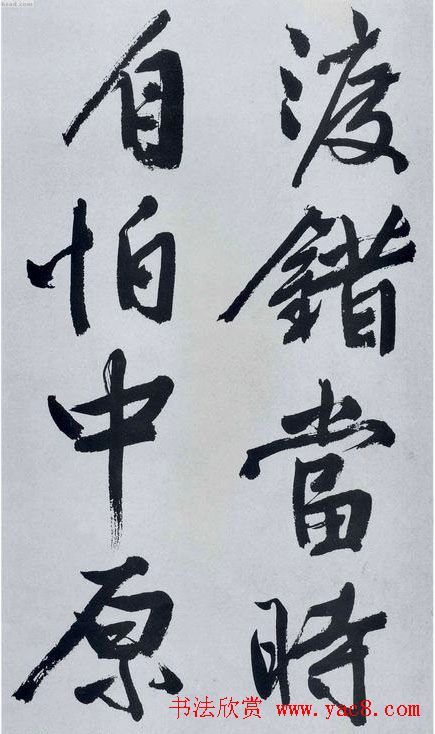 渡錯當時
自怕中原
书法欣赏 www.yac8.com
head.com